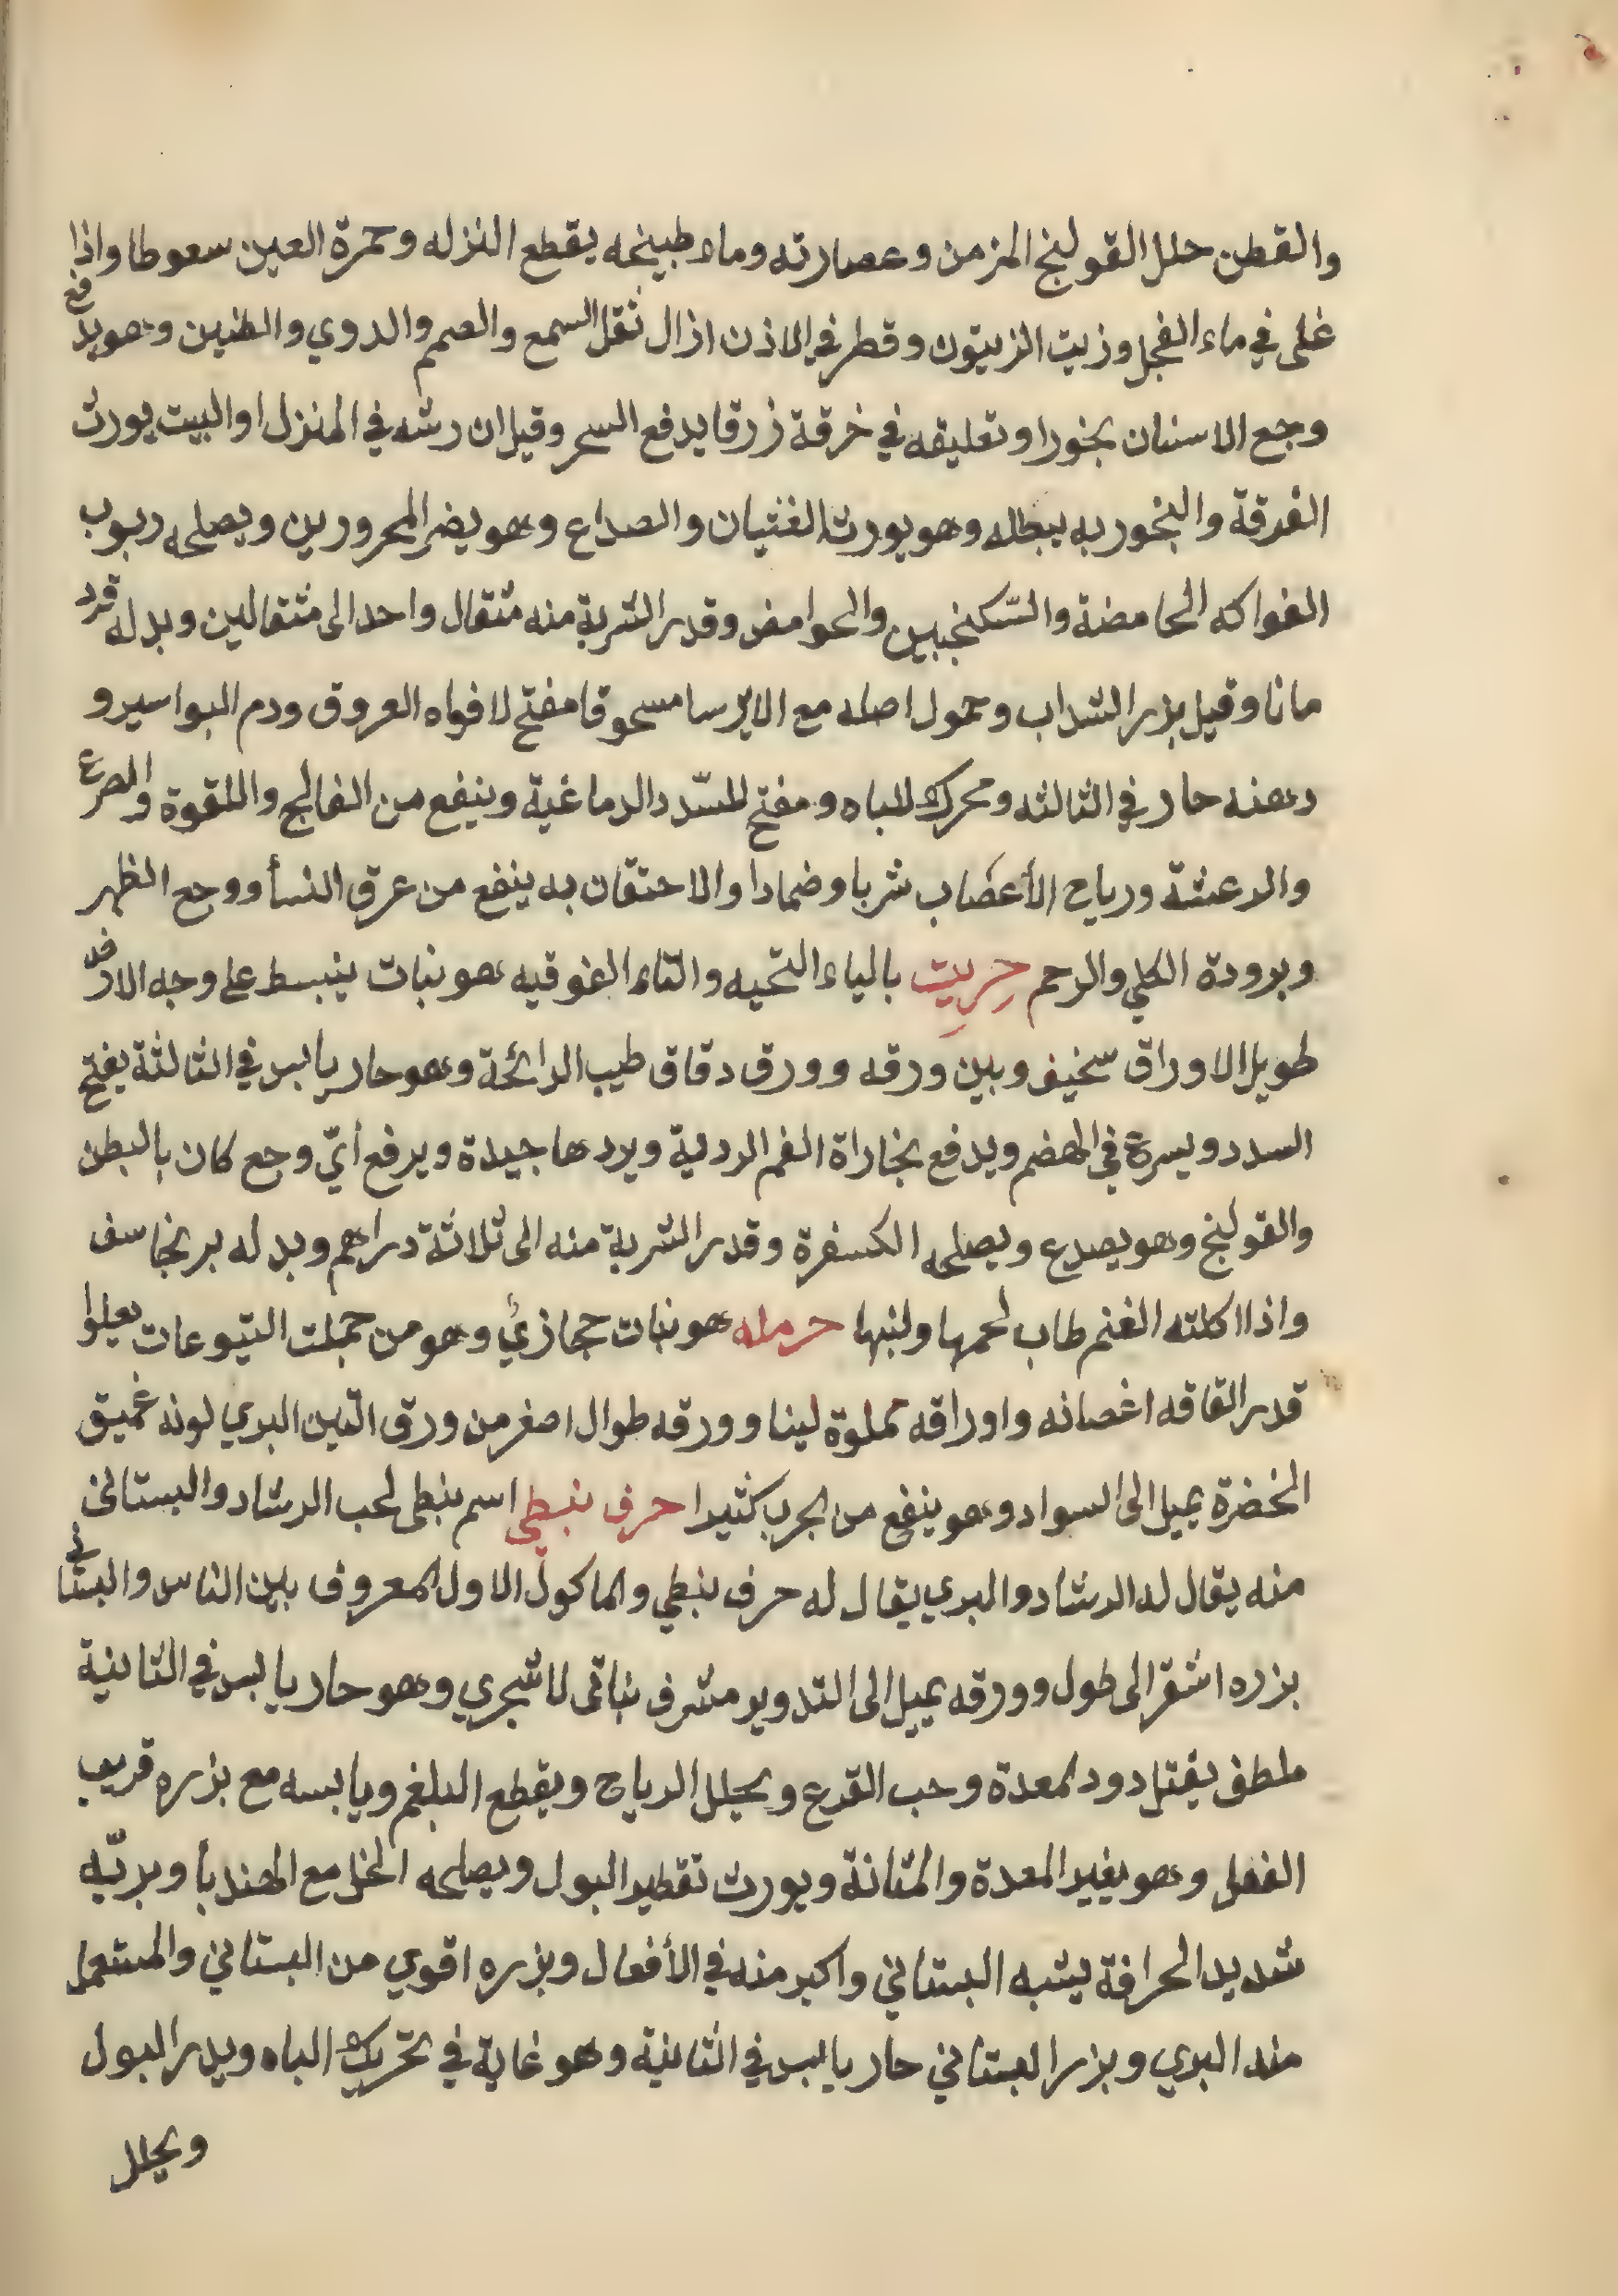 والقطن حلل القولنج المزمن وعصارته وماء طبيخه يقطع النزله وحمرة العين سعوطا واذا
غلى في ماء الفجل وزيت الزيتون وقطر في الاذن ازال ثقل السمع والصمم والدوي والطنين وهو يدفع
وجع الاسنان بخورا وتعليقه في خرقة زرقا يدفع السحر وقيل ان رشه في المنزل او البيت يورث
الفرقة والبخور به يبطله وهو يورث الغثيان والصداع وهو يضر المحرورين ويصلحه ربوب
الفواكه الحامضة والسّكنجبين والحوامض وقدر الشربة منه مثقال واحد الى مثقالين وبدله قرد
مانا وقيل بزر السداب وحمول اصله مع الايرسا مسحوقا مفتح لافواه العروق ودم البواسير و
دهنه حار في الثالثه ومحرك للباه ومفتح للسّدد الدماغية وينفع من الفالج واللقوة والصرع
والرعشة ورياح الأعصاب شربا وضمادا والاحتقان به ينفع من عرق النسأ ووجع الظهر
وبرودة الكلي والرحم حِرِيت بالياء التحيه والتاء الفوقيه هو نبات ينبسط على وجه الارض
طويل الاوراق سخيف وبين ورقه وورق دقاق طيب الرائحة وهو حار يابس في الثالثة يفتح
السدد ويسرع في الهضم ويدفع بخاراة الفم الردية ويردها جيدة ويرفع أيّ وجع كان بالبطن
والقولنج وهو يصدع ويصلحه الكسفرة وقدر الشربة منه الى ثلاثة دراهم وبدله برنجاسف
واذا اكلته الغنم طاب لحمها ولبنها حرمله هو نبات حجازيُ وهو من جملت اليتوعات يعلوا
قدر القاقه اغصانه واوراقه مملوة لبنا وورقه طوال اصغر من ورق التين البري لونه غميق
الخضرة يميل الى السواد وهو ينفع من الجرب كثيرا حرف نبطي اسم نبطى لحب الرشاد والبستانى
منه يقال له الرشاد والبري يقال له حرف نبطي والماكول الاول المعروف بين الناس والبستاني
بزره اشقر الى طول وورقه يميل الى التدوير مشرف نباتى لا شجري وهو حار يابس في الثانية
ملطف يقتل دود المعدة وحب القرع ويحلل الرياح ويقطع البلغم ويابسه مع بزره قريب
الفعل وهو يغير المعدة والمثانة ويورث تقطير البول ويصلحه الخل مع الهندبأ وبريّه
شديد الحرافة يشبه البستاني واكبر منه في الأفعال وبزره اقوي من البستاني والمستعمل
منه البري وبزر البستاني حار يابس في الثانية وهو غاية في تحريك الباه ويدر البول
ويحلل